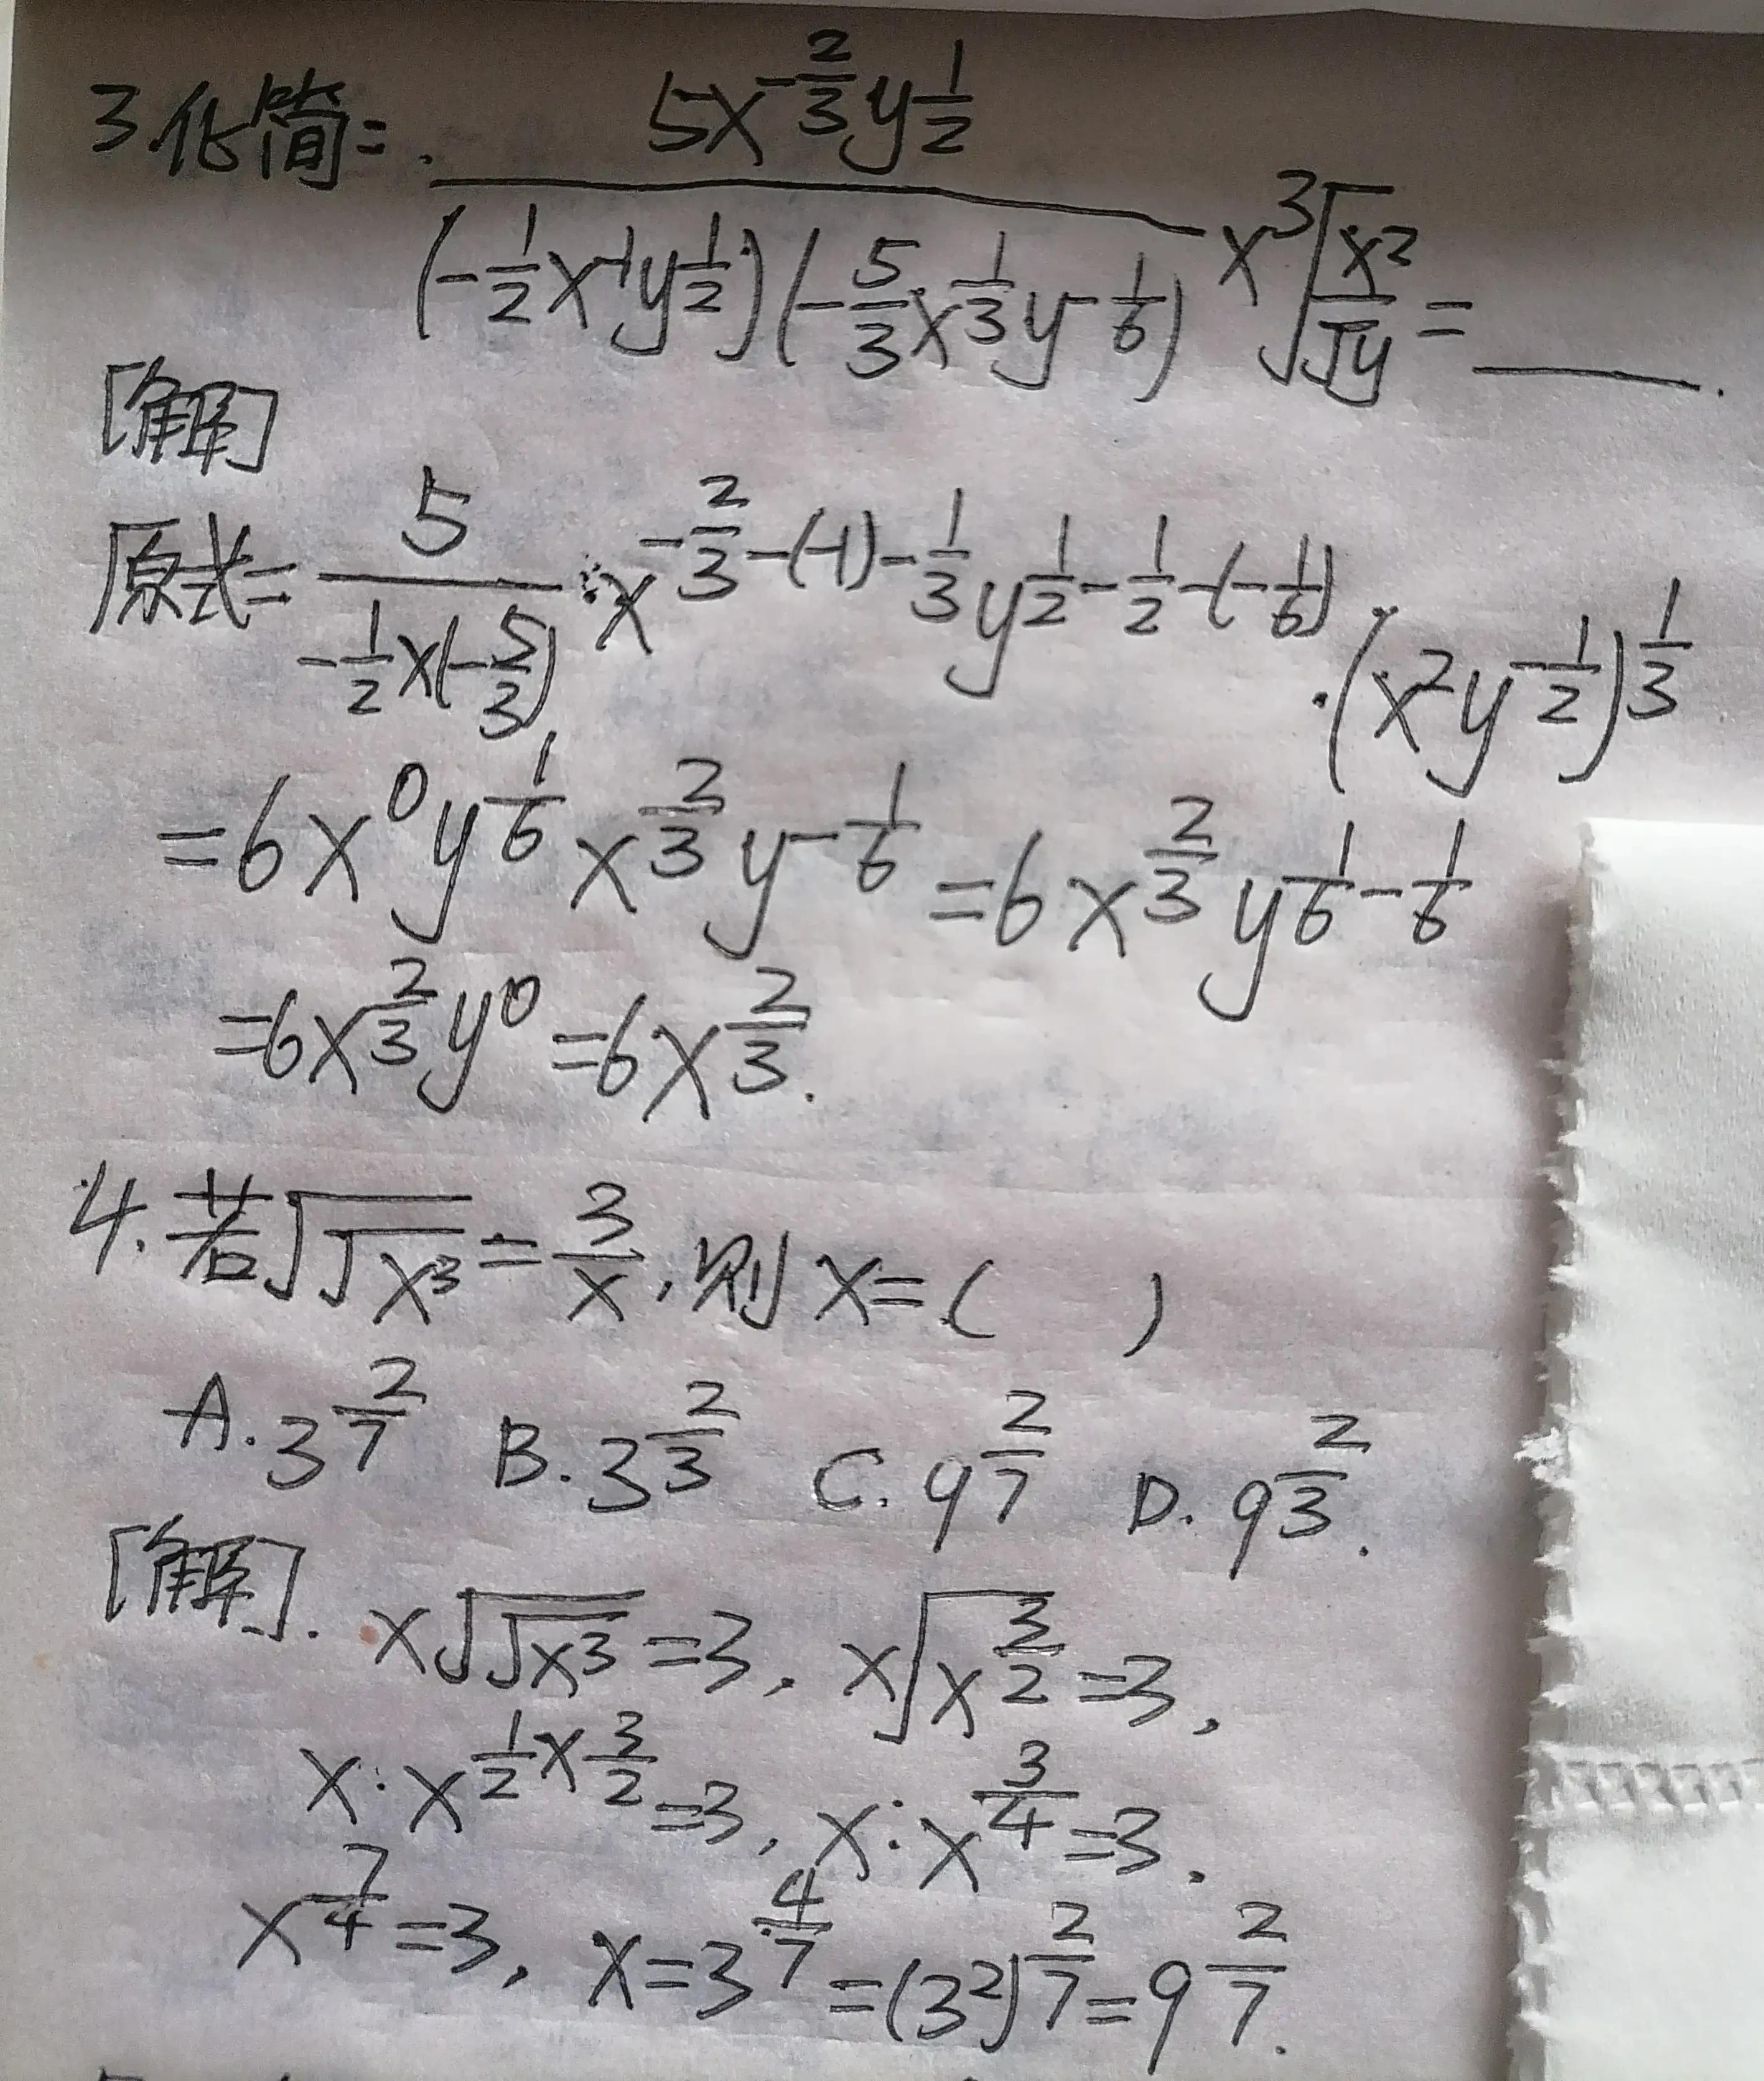 3.化简: $\frac{5x^{-\frac{2}{3}}y^{\frac{1}{2}}}{(-\frac{1}{2}x^{-1}y^{\frac{1}{2}})(-\frac{5}{3}x^{\frac{1}{3}}y^{-\frac{1}{6}})}×\sqrt[3]{\frac{x^2}{\sqrt{y}}}=$____.
[解]
原式= $\frac{5}{-\frac{1}{2}×(-\frac{5}{3})}·x^{-\frac{2}{3}-(-1)-\frac{1}{3}}y^{\frac{1}{2}-\frac{1}{2}-(-\frac{1}{6})}·(x^2y^{-\frac{1}{2}})^{\frac{1}{3}}$
$=6x^0y^{\frac{1}{6}}x^{\frac{2}{3}}y^{-\frac{1}{6}}=6x^{\frac{2}{3}}y^{\frac{1}{6}-\frac{1}{6}}$
$=6x^{\frac{2}{3}}y^0=6x^{\frac{2}{3}}.$
4.若$\sqrt{\sqrt{x^3}}=\frac{3}{x}$,则x=( )
A.$3^{\frac{2}{7}}$ B.$3^{\frac{2}{3}}$ C.$9^{\frac{2}{7}}$ D.$9^{\frac{2}{3}}$.
[解]. $x\sqrt{\sqrt{x^3}}=3$, $x\sqrt{x^{\frac{3}{2}}}=3$,
$x·x^{\frac{1}{2}×\frac{3}{2}}=3$, $x·x^{\frac{3}{4}}=3$.
$x^{\frac{7}{4}}=3$, $x=3^{\frac{4}{7}}=(3^2)^{\frac{2}{7}}=9^{\frac{2}{7}}$.